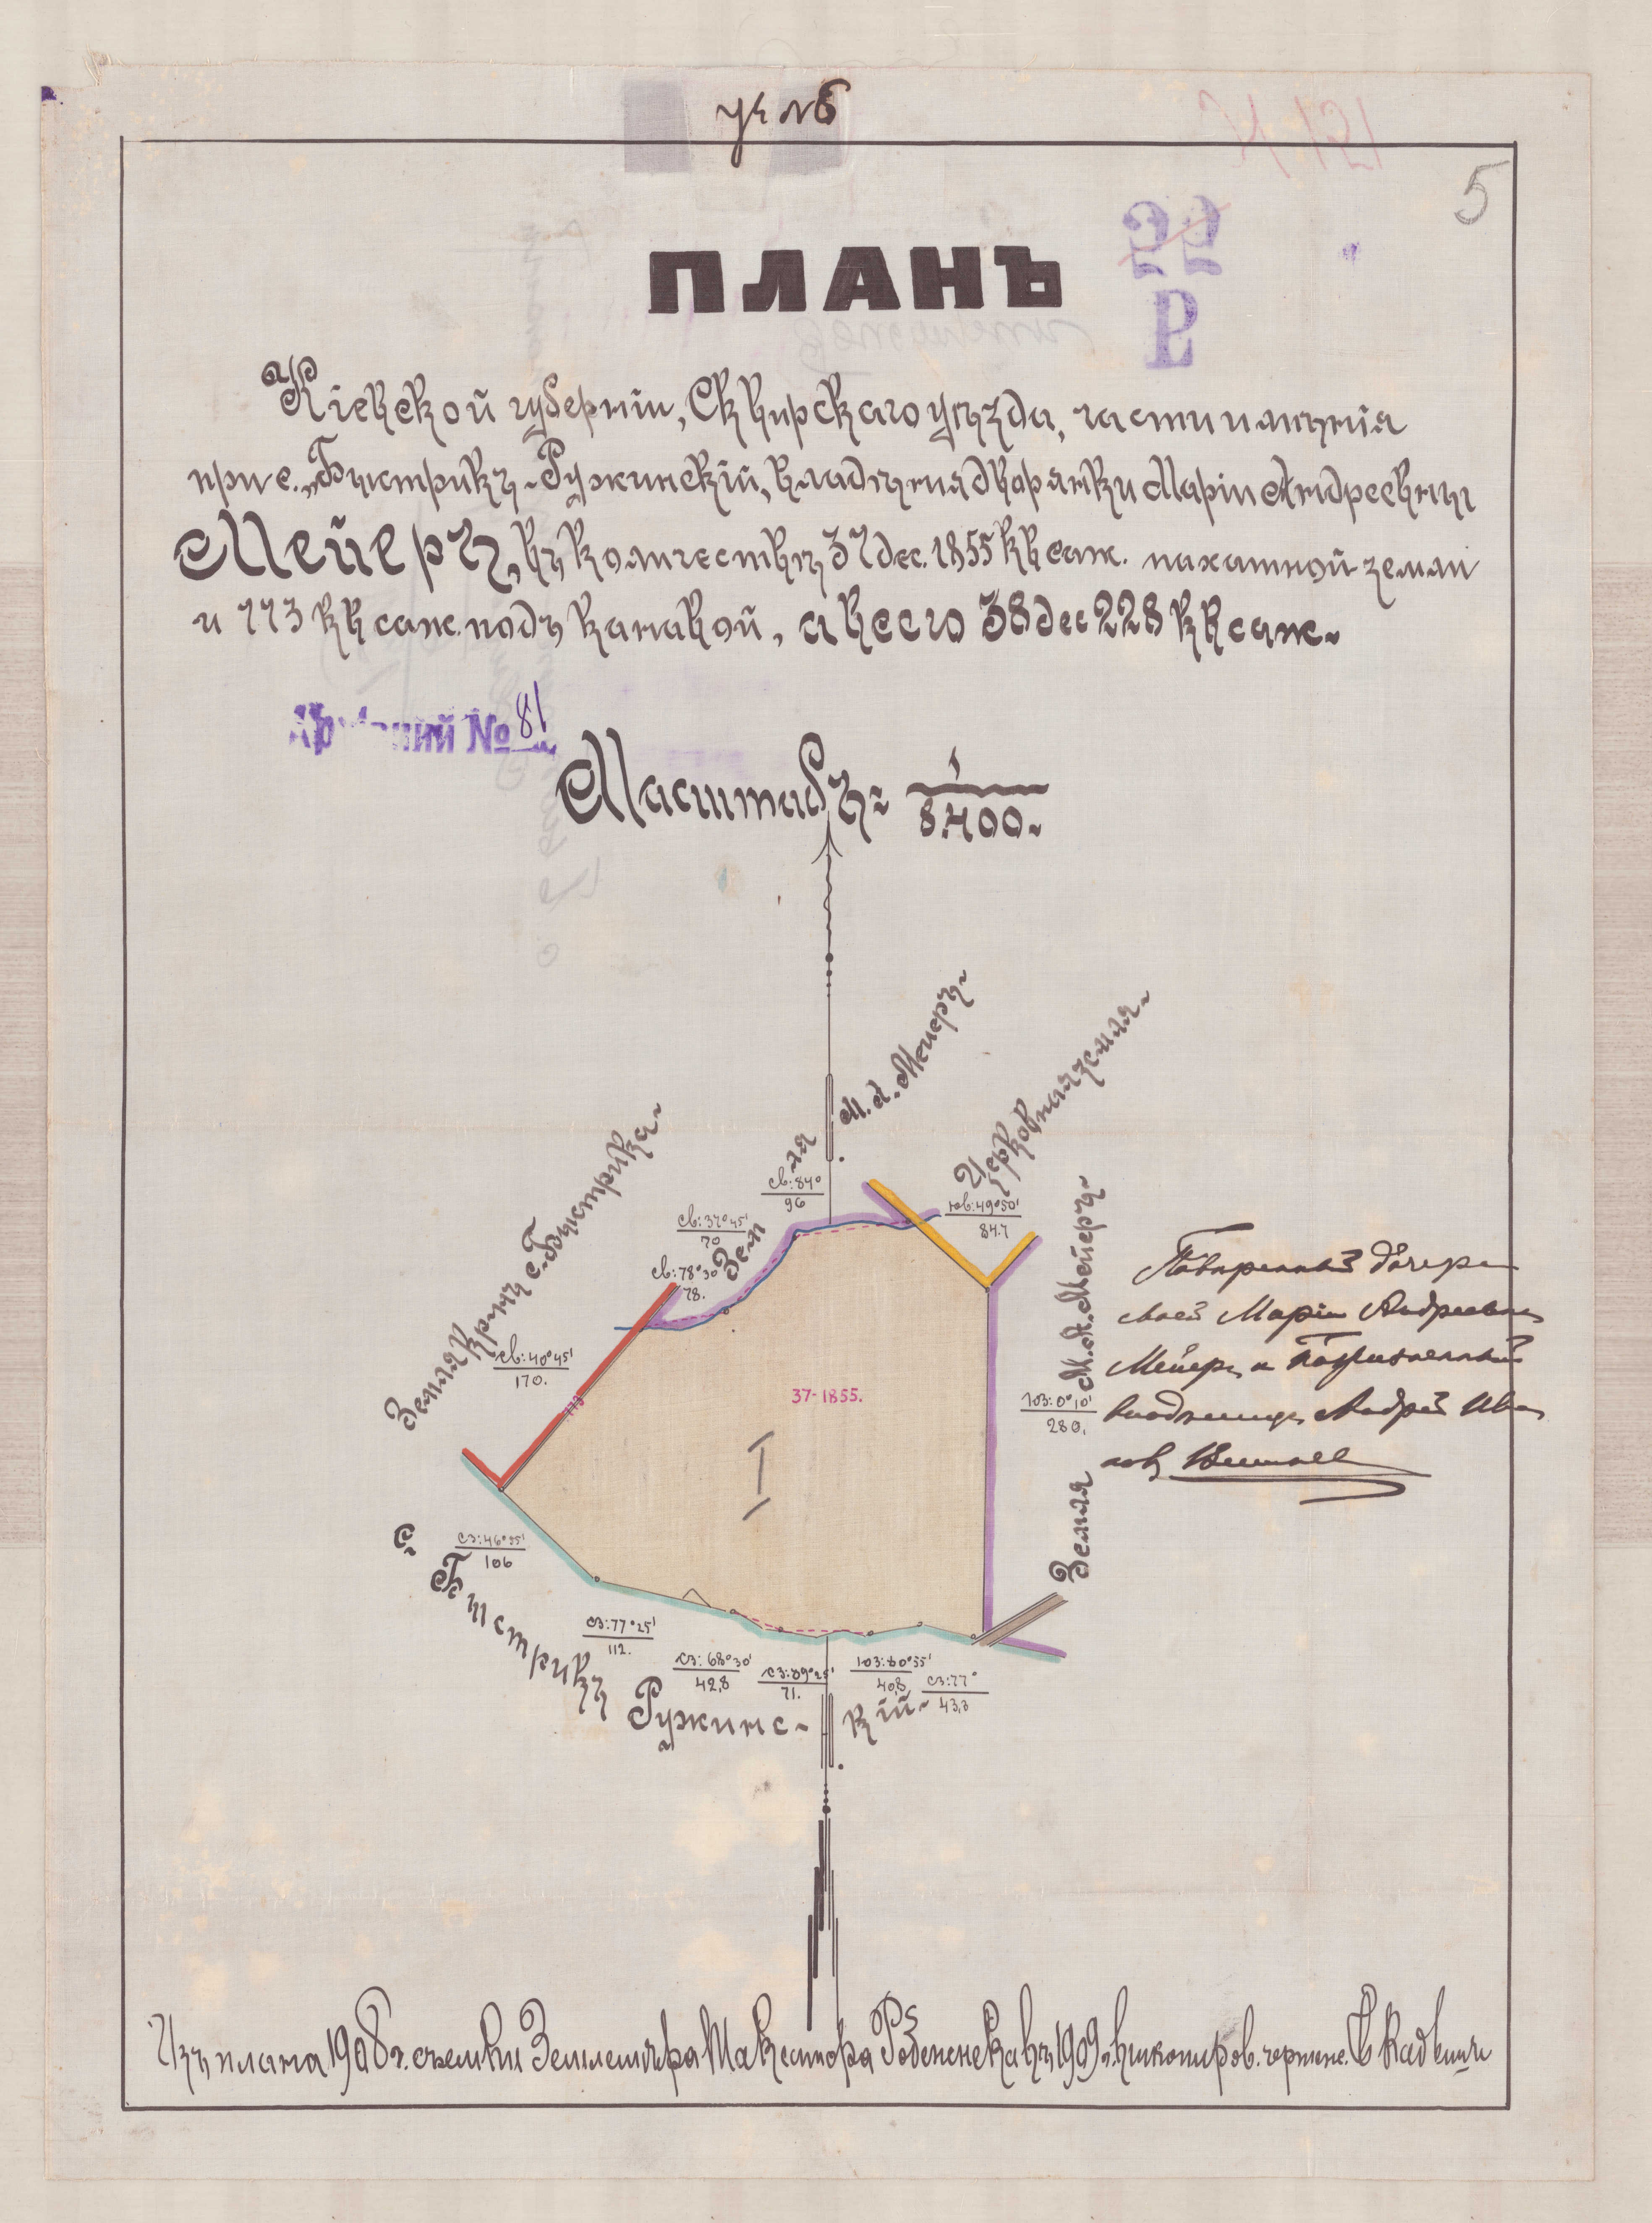 уч №6
5
ПЛАНЪ
Кіевской губерніи, Сквирскаго уѣзда, части имѣнія
при с. „Быстрикъ-Ружинскій, владѣнія дворянки Маріи Андреевны
Мейеръ, въ количествѣ 37 дес. 1855 кв саж. пахатной земли
и 773 кв саж. подъ канавой, а всего 38 дес 228 кв саж.
Архивний № 81
Масштабъ 1/8.400.
Земля М. А. Мейеръ
Церковная земля
Земля крѣнъ с. Быстрика
Земля М. А. Мейеръ
СВ: 84° 96
СВ: 37°45' 70
СВ: 78°30' 78.
ЮВ: 49°50' 84.7
СВ: 40°45' 170.
37-1855.
773
I
ЮЗ: 0°10' 280.
СЗ: 46°55' 106
СЗ: 77°25' 112.
СЗ: 68°30' 42,8
СЗ: 89°25' 71.
ЮЗ: 80°55' 40,8
СЗ: 77° 43,3
с. Быстрикъ Ружинскій
Повѣренный дочери
моей Маріи Андреевны
Мейеръ и
Андрей Ива
новъ
Изъ плана 1908 г. съемки Землемѣра въ 1909 г. выкопиров. чертежн.